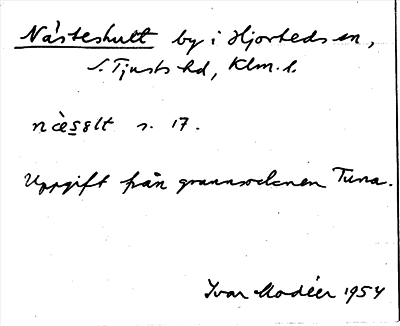 Nästeshult by i Hjorteds sn,
S. Tjusts hd, Klm. l.
næ̀sₔlt s. 17.
Uppgift från grannsocknen Tuna.
Ivar Modéer 1954